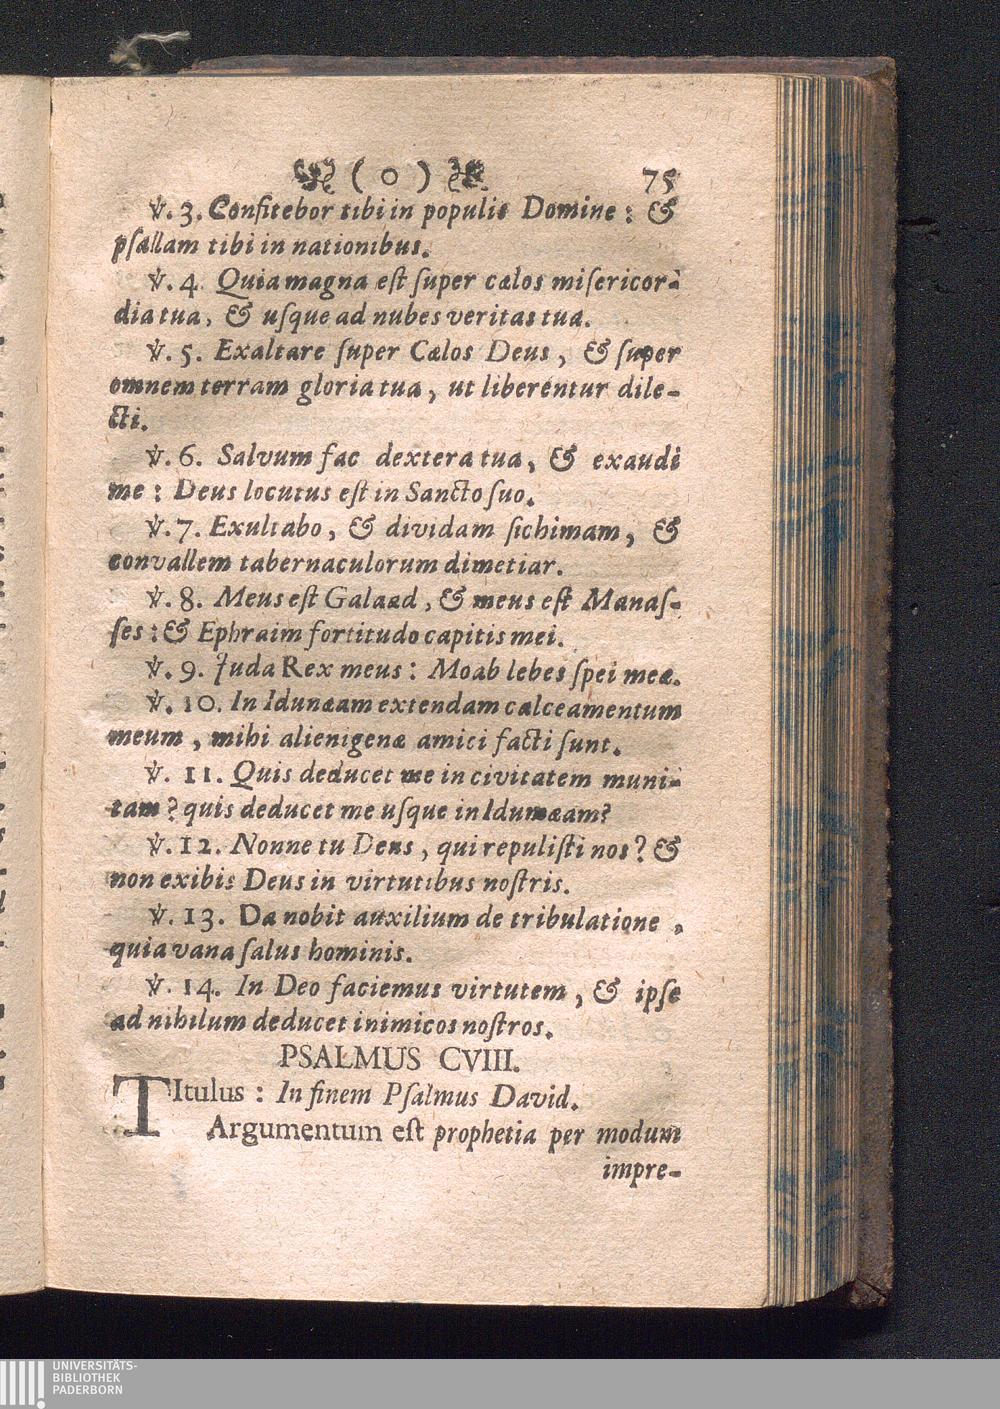 ( o ) 75
℣. 3. Confitebor tibi in populis Domine: &
psallam tibi in nationibus.
℣. 4. Quia magna est super cælos misericor-
dia tua, & usque ad nubes veritas tua.
℣. 5. Exaltare super Cælos Deus, & super
omnem terram gloria tua, ut liberentur dile-
cti.
℣. 6. Salvum fac dextera tua, & exaudi
me: Deus locutus est in Sancto suo.
℣. 7. Exultabo, & dividam sichimam, &
convallem tabernaculorum dimetiar.
℣. 8. Meus est Galaad, & meus est Manas-
ses: & Ephraim fortitudo capitis mei.
℣. 9. Juda Rex meus: Moab lebes spei meæ.
℣. 10. In Idunæam extendam calceamentum
meum, mihi alienigenæ amici facti sunt.
℣. 11. Quis deducet me in civitatem muni-
tam? quis deducet me usque in Idumæam?
℣. 12. Nonne tu Deus, qui repulisti nos? &
non exibis Deus in virtutibus nostris.
℣. 13. Da nobit auxilium de tribulatione,
quia vana salus hominis.
℣. 14. In Deo faciemus virtutem, & ipse
ad nihilum deducet inimicos nostros.
PSALMUS CVIII.
TItulus: In finem Psalmus David.
Argumentum est prophetia per modum
impre-
UNIVERSITÄTS-
BIBLIOTHEK
PADERBORN